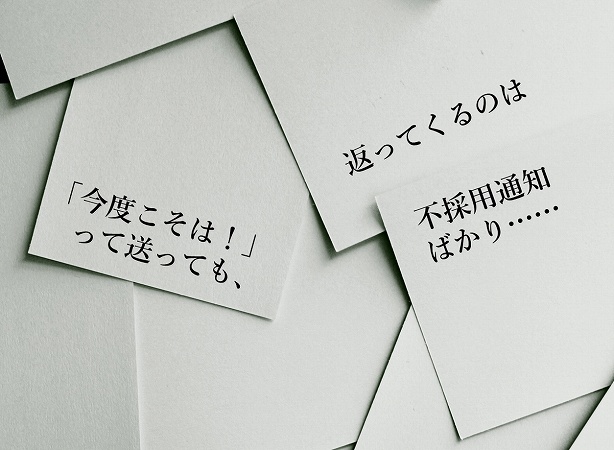 「今度こそは！」
って送っても、
返ってくるのは
不採用通知
ばかり……